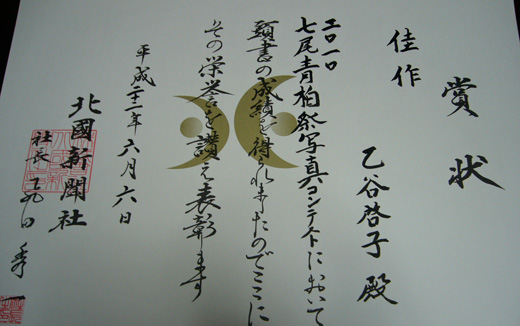 賞状
佳作
乙谷啓子 殿
二〇一〇
七尾青柏祭写真コンテストにおいて
頭書の成績を得られましたのでここに
その栄誉を讃え表彰します
平成二十二年六月六日
北國新聞社
社長